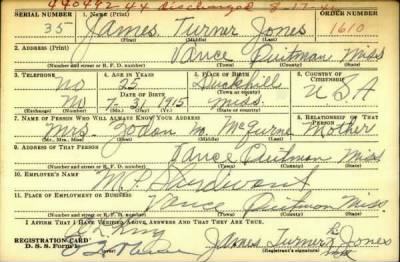 440442 44 discharged 8-17-4
SERIAL NUMBER 1. NAME (Print) ORDER NUMBER
35 James Turner Jones 1610
2. ADDRESS (Print)
Vance Quitman Miss
(Number and street or R. F. D. number) (Town) (County) (State)
3. TELEPHONE 4. AGE IN YEARS 5. PLACE OF BIRTH 6. COUNTRY OF CITIZENSHIP
No 25 Duckhill
DATE OF BIRTH (Town or county)
No 7-3 1915 Miss. U.S.A
(Mo.) (Day) (Yr.) (State or country)
7. NAME OF PERSON WHO WILL ALWAYS KNOW YOUR ADDRESS 8. RELATIONSHIP OF THAT PERSON
Mrs. Zodon M. Mother
(Mr., Mrs., Miss) (First) (Middle) (Last)
9. ADDRESS OF THAT PERSON
Vance Quitman Miss
(Number and street or R. F. D. number) (Town) (County) (State)
10. EMPLOYER'S NAME
M. P. Sturdivant
11. PLACE OF EMPLOYMENT OR BUSINESS
Vance Quitman Miss
(Number and street or R. F. D. number) (Town) (County) (State)
I AFFIRM THAT I HAVE VERIFIED ABOVE ANSWERS AND THAT THEY ARE TRUE.
REGISTRATION CARD
D. S. S. Form 1 James Turner Jones
(Registrant's signature)